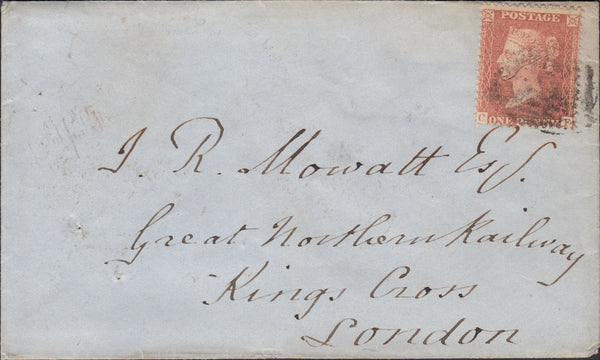 POSTAGE
ONE PENNY
J. R. Mowatt Esq.
Great Northern Railway
Kings Cross
London